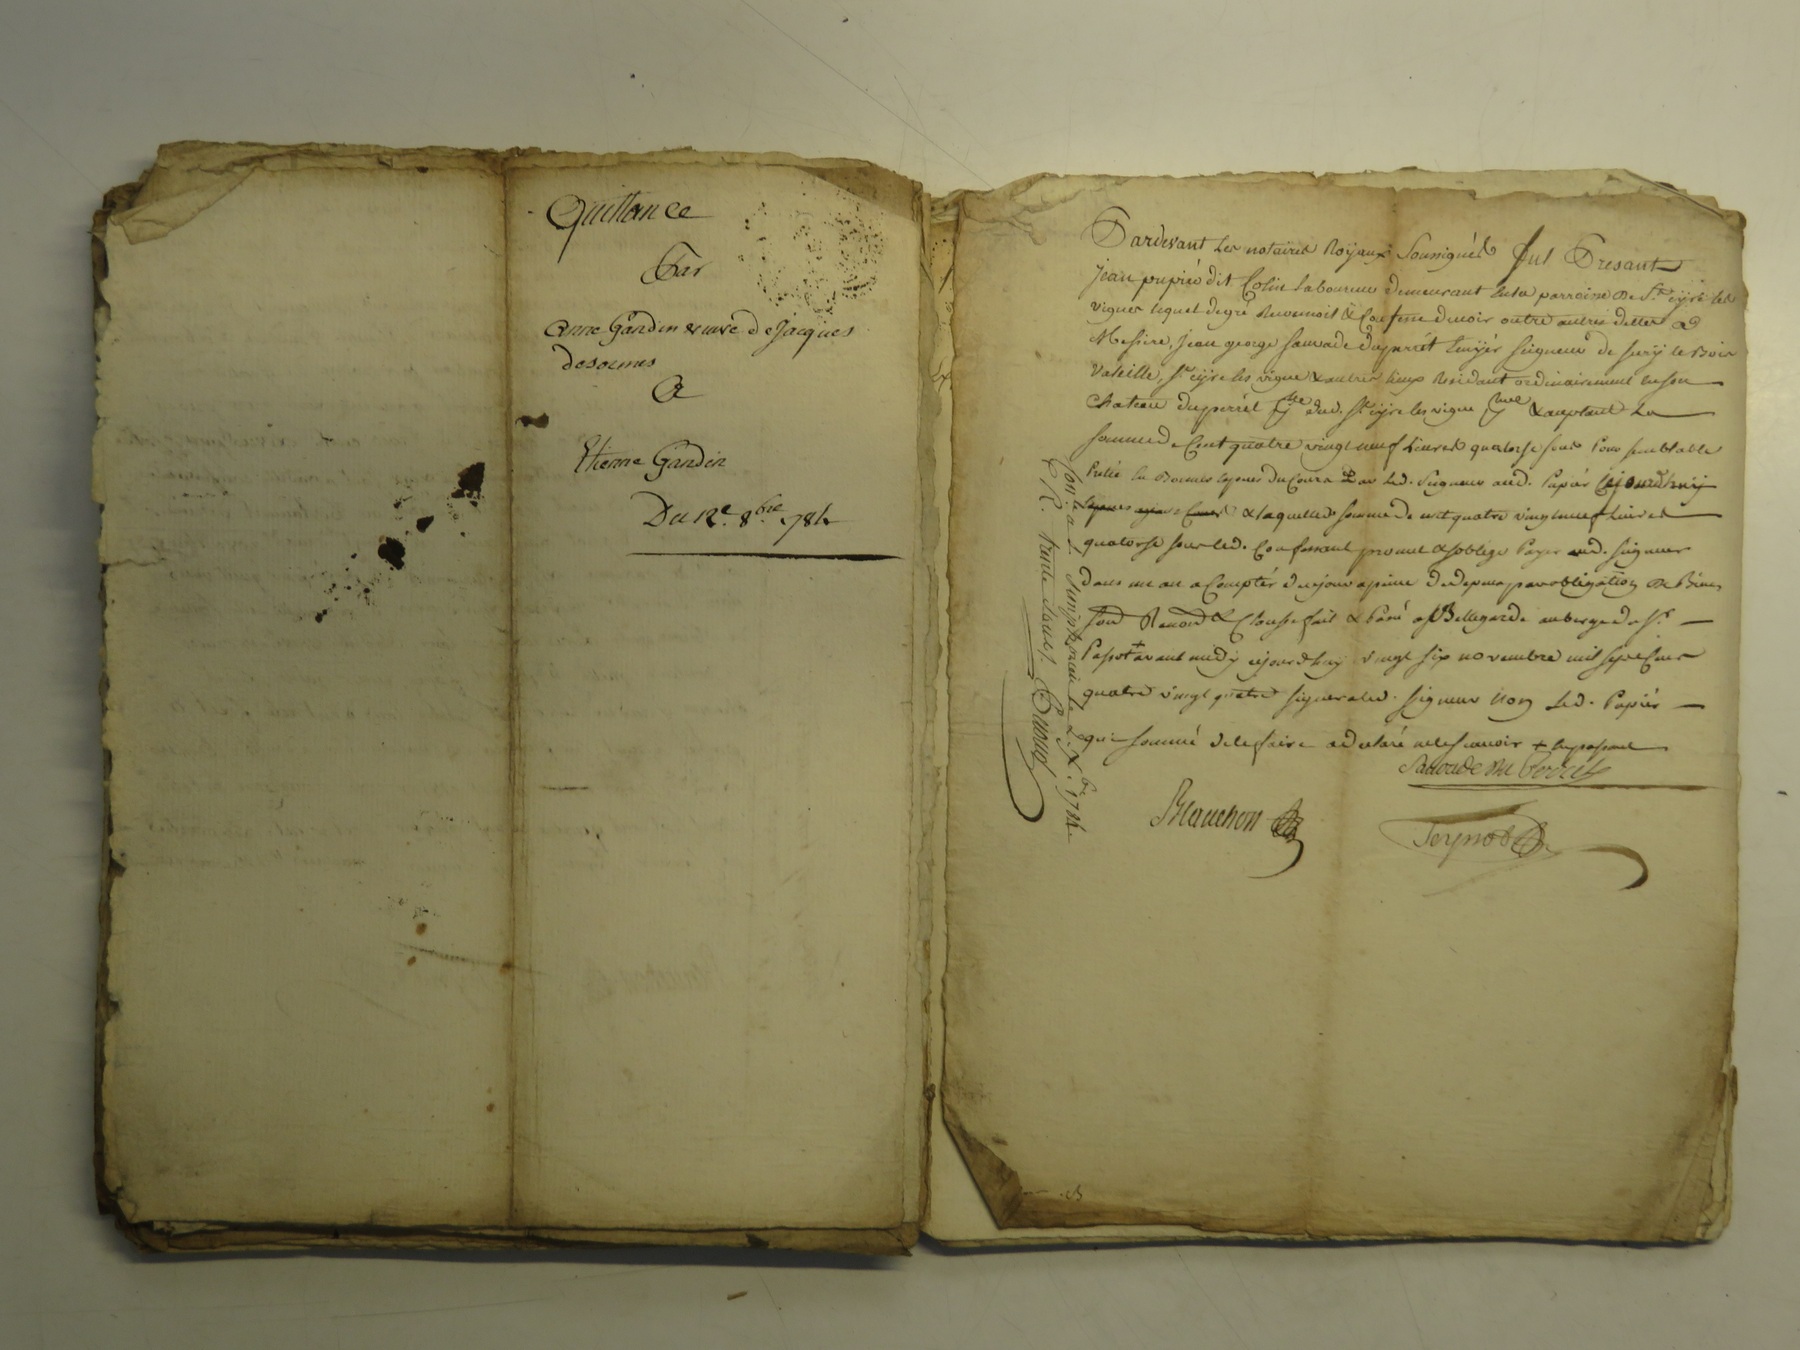 Quittance
Par
anne Gandin veuve de jacques
desormes
A
Etienne Gandin
Du 12e. 8bre 1784
Pardevant les notaires Royaux soussignés fut Presant
jean papié dit Colin laboureur demeurant en la parroisse de St. cyre les
vignes lequel de gré reconnoit & confesse devoir outre autres dettes a
Messire, jean george sauvade duperrét Ecuyér seigneur de sury le bois
Valeille, St. cyre les vigne & autres lieux residant ordinairement en son
chateau duperrét psse dud. St. cyre les vigne psent & acceptant La
somme de Cent quatre vingt neuf Livres quatorse sous Pour semblable
Prétée en Bonnes especes du Cours Par Led. Seigneur aud. Papiér Cejourd'huy
& laquelle somme de cent quatre vingt neuf Livres
quatorse sous led. Confessant promet & soblige Payer aud. seigneur
dans un an a Comptér de ce jour a peine de depens par obligation de Biens
soud Renond & Clauses fait & Passé a Bellegarde auberge de Sr.
Papot + avant midy cejourdhuy vingt six novembre mil sept Cens
quatre vingt quatre signera led. seigneur non Led. Papiér
qui sommé de le faire a declaré ne le scavoir +
Sauvade Du Perrét
Blanchon
Peynod
Con. le a St. Simphorien le Xbre. 1784
R. trente